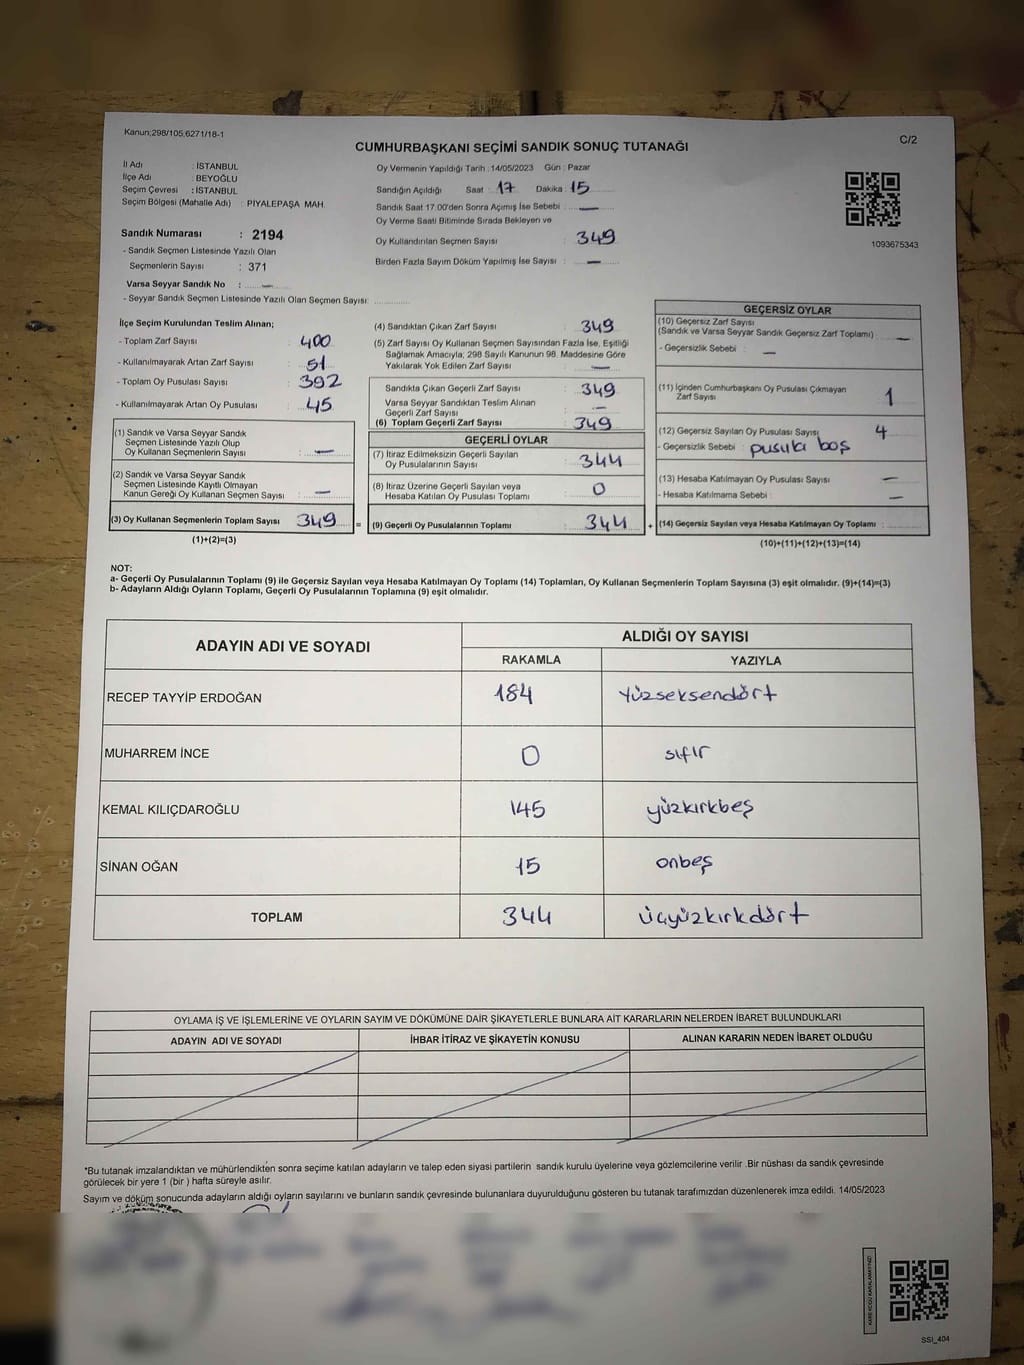 Kanun;298/105,6271/18-1
C/2
CUMHURBAŞKANI SEÇİMİ SANDIK SONUÇ TUTANAĞI
İl Adı : İSTANBUL
İlçe Adı : BEYOĞLU
Seçim Çevresi : İSTANBUL
Seçim Bölgesi (Mahalle Adı) : PİYALEPAŞA MAH.
Sandık Numarası : 2194
- Sandık Seçmen Listesinde Yazılı Olan
Seçmenlerin Sayısı : 371
Varsa Seyyar Sandık No : —
- Seyyar Sandık Seçmen Listesinde Yazılı Olan Seçmen Sayısı:
Oy Vermenin Yapıldığı Tarih :14/05/2023 Gün : Pazar
Sandığın Açıldığı Saat : 17 Dakika : 15
Sandık Saat 17:00'den Sonra Açımış İse Sebebi : —
Oy Verme Saati Bitiminde Sırada Bekleyen ve
Oy Kullandırılan Seçmen Sayısı : 349
Birden Fazla Sayım Döküm Yapılmış İse Sayısı : —
1093675343
İlçe Seçim Kurulundan Teslim Alınan;
- Toplam Zarf Sayısı : 400
- Kullanılmayarak Artan Zarf Sayısı : 51
- Toplam Oy Pusulası Sayısı : 392
- Kullanılmayarak Artan Oy Pusulası : 45
(1) Sandık ve Varsa Seyyar Sandık
Seçmen Listesinde Yazılı Olup
Oy Kullanan Seçmenlerin Sayısı : —
(2) Sandık ve Varsa Seyyar Sandık
Seçmen Listesinde Kayıtlı Olmayan
Kanun Gereği Oy Kullanan Seçmen Sayısı : —
(3) Oy Kullanan Seçmenlerin Toplam Sayısı : 349
(1)+(2)=(3)
(4) Sandıktan Çıkan Zarf Sayısı : 349
(5) Zarf Sayısı Oy Kullanan Seçmen Sayısından Fazla İse, Eşitliği
Sağlamak Amacıyla; 298 Sayılı Kanunun 98. Maddesine Göre
Yakılarak Yok Edilen Zarf Sayısı : —
Sandıkta Çıkan Geçerli Zarf Sayısı : 349
Varsa Seyyar Sandıktan Teslim Alınan
Geçerli Zarf Sayısı : —
(6) Toplam Geçerli Zarf Sayısı : 349
GEÇERLİ OYLAR
(7) İtiraz Edilmeksizin Geçerli Sayılan
Oy Pusulalarının Sayısı : 344
(8) İtiraz Üzerine Geçerli Sayılan veya
Hesaba Katılan Oy Pusulası Toplamı : 0
= (9) Geçerli Oy Pusulalarının Toplamı : 344
GEÇERSİZ OYLAR
(10) Geçersiz Zarf Sayısı
(Sandık ve Varsa Seyyar Sandık Geçersiz Zarf Toplamı) —
- Geçersizlik Sebebi : —
(11) İçinden Cumhurbaşkanı Oy Pusulası Çıkmayan
Zarf Sayısı : 1
(12) Geçersiz Sayılan Oy Pusulası Sayısı : 4
- Geçersizlik Sebebi : pusula boş
(13) Hesaba Katılmayan Oy Pusulası Sayısı : —
- Hesaba Katılmama Sebebi : —
+ (14) Geçersiz Sayılan veya Hesaba Katılmayan Oy Toplamı :
(10)+(11)+(12)+(13)=(14)
NOT:
a- Geçerli Oy Pusulalarının Toplamı (9) ile Geçersiz Sayılan veya Hesaba Katılmayan Oy Toplamı (14) Toplamları, Oy Kullanan Seçmenlerin Toplam Sayısına (3) eşit olmalıdır. (9)+(14)=(3)
b- Adayların Aldığı Oyların Toplamı, Geçerli Oy Pusulalarının Toplamına (9) eşit olmalıdır.
ADAYIN ADI VE SOYADI
ALDIĞI OY SAYISI
RAKAMLA YAZIYLA
RECEP TAYYİP ERDOĞAN 184 Yüzseksendört
MUHARREM İNCE 0 sıfır
KEMAL KILIÇDAROĞLU 145 yüzkırkbeş
SİNAN OĞAN 15 onbeş
TOPLAM 344 üçyüzkırkdört
OYLAMA İŞ VE İŞLEMLERİNE VE OYLARIN SAYIM VE DÖKÜMÜNE DAİR ŞİKAYETLERLE BUNLARA AİT KARARLARIN NELERDEN İBARET BULUNDUKLARI
ADAYIN ADI VE SOYADI İHBAR İTİRAZ VE ŞİKAYETİN KONUSU ALINAN KARARIN NEDEN İBARET OLDUĞU
*Bu tutanak imzalandıktan ve mühürlendikten sonra seçime katılan adayların ve talep eden siyasi partilerin sandık kurulu üyelerine veya gözlemcilerine verilir .Bir nüshası da sandık çevresinde
görülecek bir yere 1 (bir ) hafta süreyle asılır.
Sayım ve döküm sonucunda adayların aldığı oyların sayılarını ve bunların sandık çevresinde bulunanlara duyurulduğunu gösteren bu tutanak tarafımızdan düzenlenerek imza edildi. 14/05/2023
SSI_404